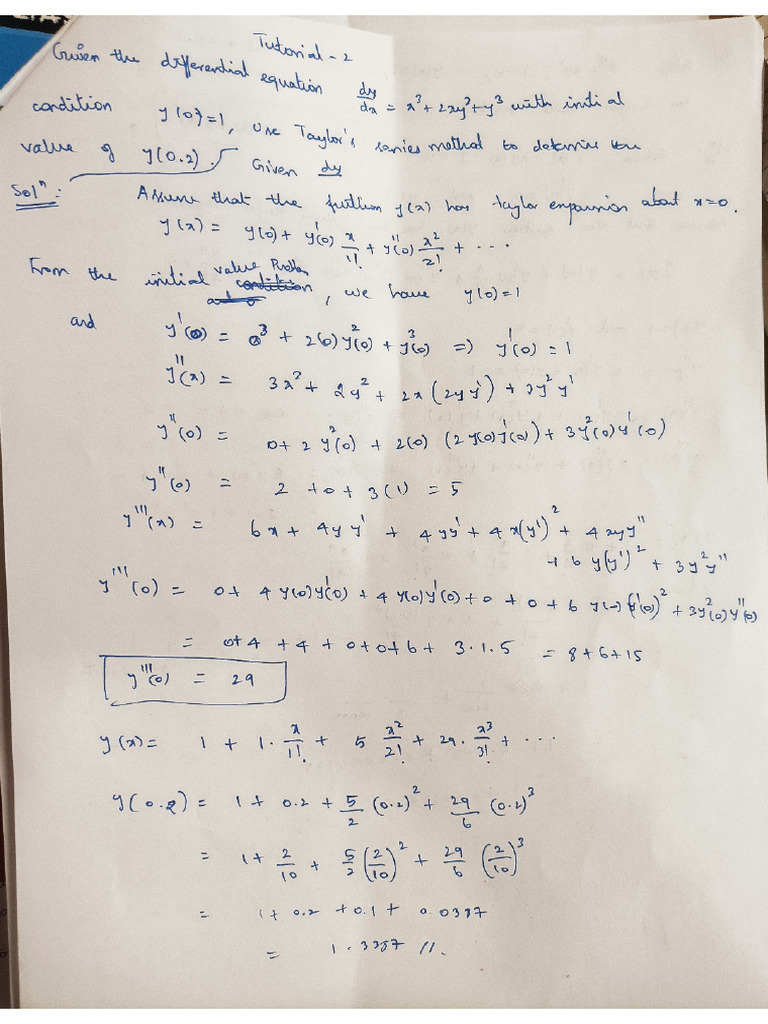 Tutorial - 2
Given the differential equation dy/dx = x³ + 2xy² + y³ with initial
condition y(0)=1, use Taylor's series method to determine the
value of y(0.2). Given dy
Solⁿ: Assume that the function y(x) has Taylor expansion about x=0.
y(x) = y(0) + y'(0) x/1! + y''(0) x²/2! + ...
From the initial value Problem, we have y(0)=1
and y'(0) = 0³ + 2(0)y²(0) + y³(0) => y'(0) = 1
y''(x) = 3x² + 2y² + 2x(2yy') + 3y²y'
y''(0) = 0+2 y²(0) + 2(0) (2y(0)y'(0)) + 3y²(0)y'(0)
y''(0) = 2 + 0 + 3(1) = 5
y'''(x) = 6x + 4yy' + 4yy' + 4x(y')² + 4xyy''
+ 6y(y')² + 3y²y''
y'''(0) = 0+ 4y(0)y'(0) + 4y(0)y'(0) + 0 + 0 + 6 y(0)(y'(0))² + 3y²(0)y''(0)
= 0+4 + 4 + 0+0+6+ 3·1·5 = 8+6+15
y'''(0) = 29
y(x) = 1 + 1· x/1! + 5 x²/2! + 29· x³/3! + ...
y(0.2) = 1 + 0.2 + 5/2 (0.2)² + 29/6 (0.2)³
= 1 + 2/10 + 5/2 (2/10)² + 29/6 (2/10)³
= 1 + 0.2 + 0.1 + 0.0387
= 1.3387 //.